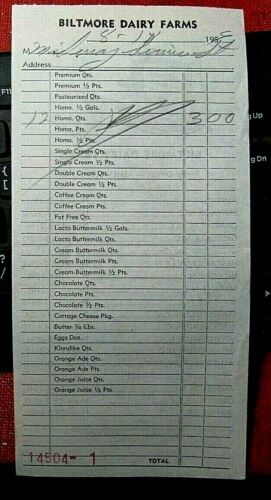 BILTMORE DAIRY FARMS
8-18 195
M
Address
Premium Qts.
Premium ½ Pts.
Pasteurized Qts.
Homo. ½ Gals.
12 Homo. Qts. 3 00
Homo. Pts.
Homo. ½ Pts.
Single Cream Qts.
Single Cream ½ Pts.
Double Cream Qts.
Double Cream ½ Pts.
Coffee Cream Qts.
Coffee Cream Pts.
Fat Free Qts.
Lacto Buttermilk ½ Gals.
Lacto Buttermilk Qts.
Cream Buttermilk Qts.
Cream Buttermilk Pts.
Cream Buttermilk ½ Pts.
Chocolate Qts.
Chocolate Pts.
Chocolate ½ Pts.
Cottage Cheese Pkg.
Butter ¼ Lbs.
Eggs Doz.
Klondike Qts.
Orange Ade Qts.
Orange Ade Pts.
Orange Juice Qts.
Orange Juice ½ Pts.
14504- 1 TOTAL